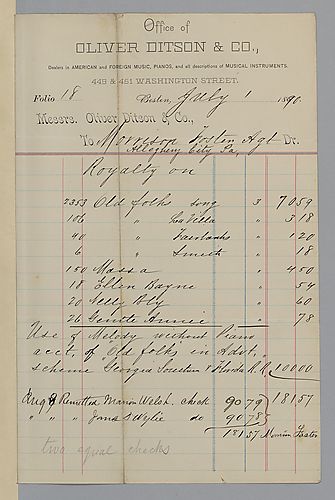 Office of
OLIVER DITSON & CO.,
Dealers in AMERICAN and FOREIGN MUSIC, PIANOS, and all descriptions of MUSICAL INSTRUMENTS.
449 & 451 WASHINGTON STREET.
Folio 18 Boston, July 1 1890.
Messrs. Oliver Ditson & Co.,
To Morrison Foster, Agt Dr.
Allegheny City Pa,
Royalty on
2353 Old folks song 3 7059
106 " La Villa " 318
40 " Fairbanks " 120
6 " Smith " 18
150 Massa " 450
18 Ellen Bayne " 54
20 Nelly Bly " 60
26 Gentle Annie " 78
Use of Melody without Piano
acct. of Old folks in Advt,
scheme Georgia Southern & Florida R.R. 10000
Aug 9 Remitted Marion Welsh. check 9079 18157
" " " Jane S Wylie do 9078
18157 Morrison Foster
two equal checks